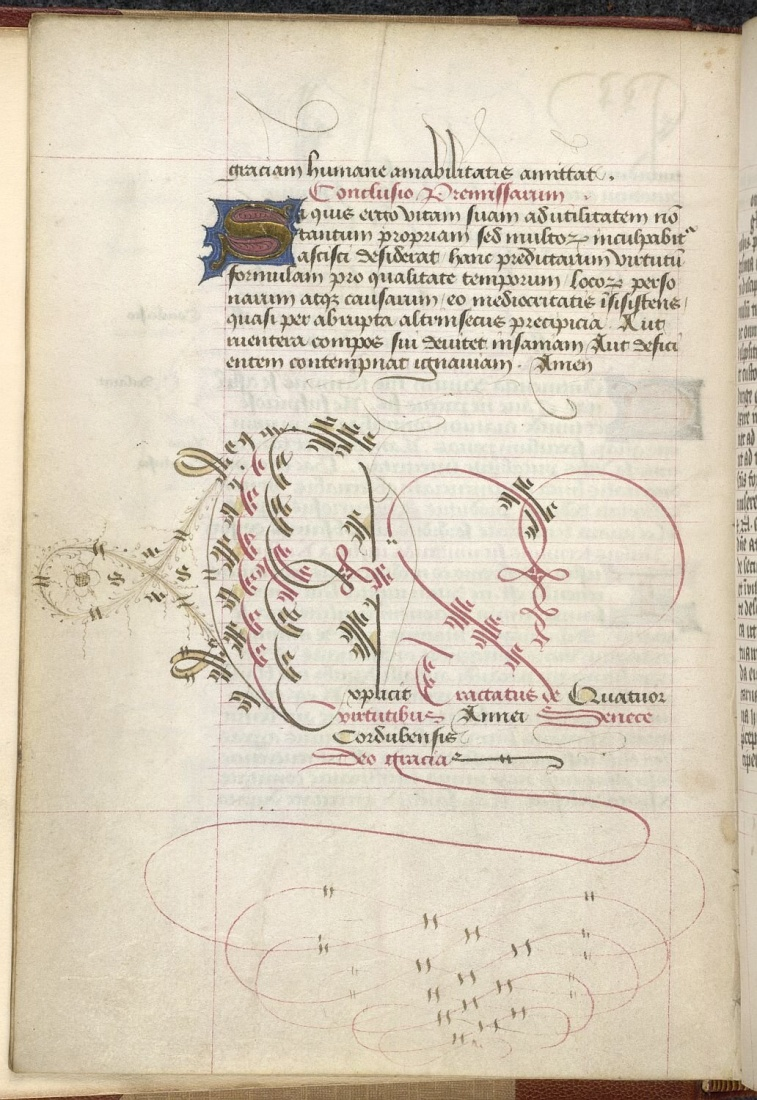 graciam humane amabilitatis amittat.
Conclusio Premissarum
Si quis ergo vitam suam ad utilitatem nō
tantum propriam sed multoꝝ inculpabitʳ
ascisci desiderat hanc predictarum virtutū
formulam pro qualitate temporum / locoꝝ perso
narum atqꝫ causarum / eo mediocritatis
quasi per abrupta altrinsecus precipicia. Aut
ruentem compos sui devitet insaniam / Aut defici
entem contempnat ignaviam. Amen
Explicit Tractatus de Quatuor
virtutibus Annei Senece
Cordubensis
Deo gracias